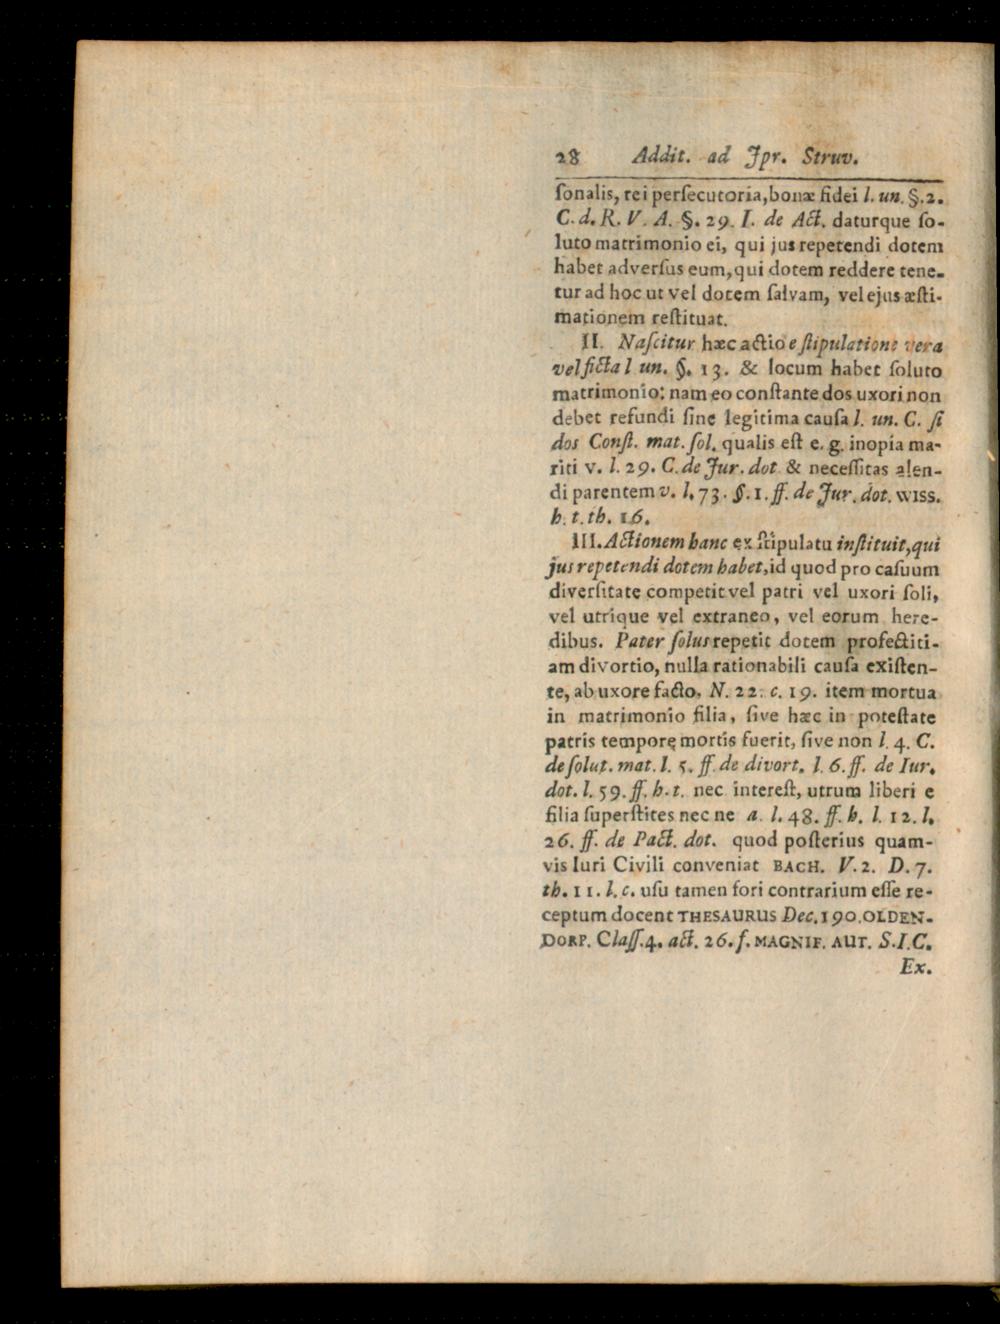 28 Addit. ad Jpr. Struv.
ſonalis, rei perſecutoria, bonæ fidei l. un. §. 2.
C. d. R. V. A. §. 29. I. de Act. daturque ſo-
luto matrimonio ei, qui jus repetendi dotem
habet adverſus eum, qui dotem reddere tene-
tur ad hoc ut vel dotem ſalvam, vel ejus æſti-
mationem reſtituat.
II. Naſcitur hæc actio e ſtipulatione vera
vel ficta l un. §. 13. & locum habet ſoluto
matrimonio: nam eo conſtante dos uxori non
debet refundi ſine legitima cauſa l. un. C. ſi
dos Conſt. mat. ſol. qualis eſt e. g. inopia ma-
riti v. l. 29. C. de Jur. dot. & neceſſitas alen-
di parentem v. l. 73. §. 1. ff. de Jur. dot. WISS.
h. t. th. 16.
III. Actionem hanc ex ſtipulatu inſtituit, qui
jus repetendi dotem habet, id quod pro caſuum
diverſitate competit vel patri vel uxori ſoli,
vel utrique vel extraneo, vel eorum here-
dibus. Pater ſolus repetit dotem profectiti-
am divortio, nulla rationabili cauſa exiſten-
te, ab uxore facto. N. 22. c. 19. item mortua
in matrimonio filia, ſive hæc in poteſtate
patris tempore mortis fuerit, ſive non l. 4. C.
de ſolut. mat. l. 5. ff. de divort. l. 6. ff. de Iur.
dot. l. 59. ff. h. t. nec intereſt, utrum liberi e
filia ſuperſtites nec ne a. l. 48. ff. h. l. 12. l.
26. ff. de Pact. dot. quod poſterius quam-
vis Iuri Civili conveniat BACH. V. 2. D. 7.
th. 11. l. c. uſu tamen fori contrarium eſſe re-
ceptum docent THESAURUS Dec. 190. OLDEN-
DORP. Claſſ. 4. act. 26. f. MAGNIF. AUT. S. I. C.
Ex.